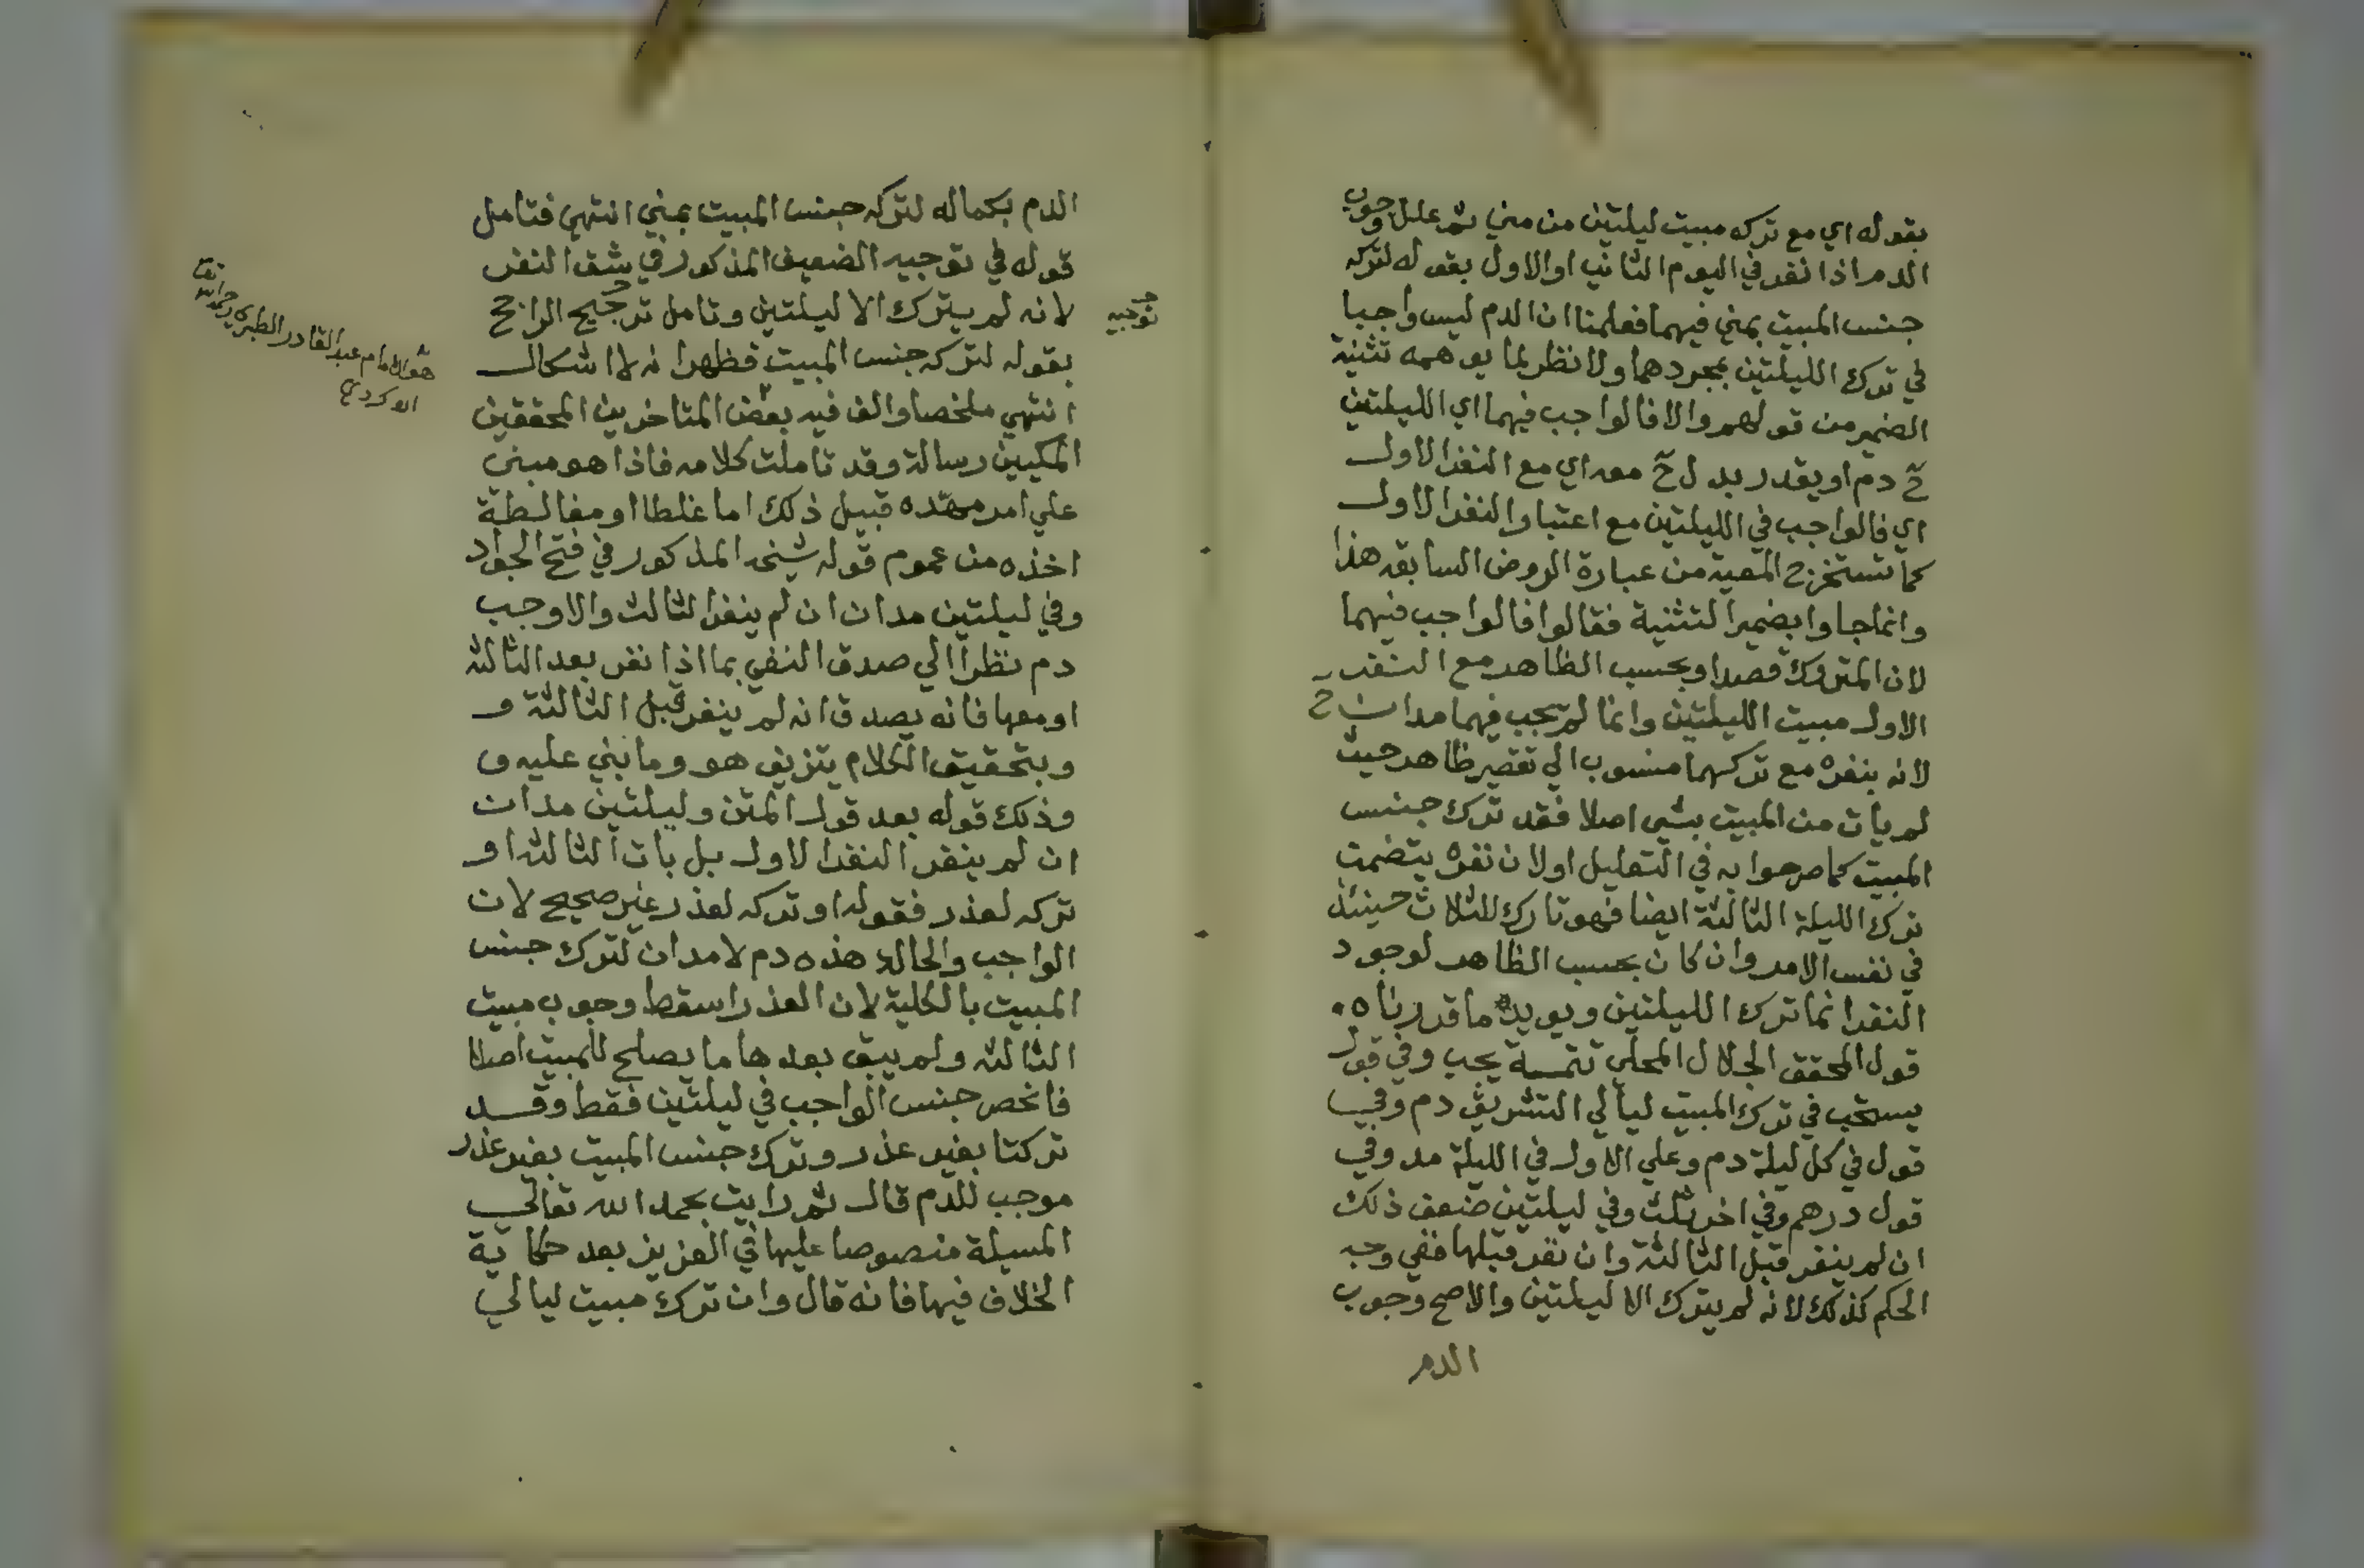 بقوله اي مع تركه مبيت ليلتين من مني ثم علل وجوب
الدم اذا نفر في اليوم الثاني او الاول بقوله لتركه
جنس المبيت بمني فيهما فعلمنا ان الدم ليس واجبا
في ترك الليلتين بمجردهما ولا نظر لما يوهمه تثنية
الضمير من قولهم والا فالواجب فيهما اي الليلتين
ح دم او يقدر بدل ح معه اي مع النفر الاول
اي فالواجب في الليلتين مع اعتبار النفر الاول
كما تستخرج المعية من عبارة الروض السابقة هذا
وانما جاوا بضمير التثنية فقالوا فالواجب فيهما
لان المتروك قصدا وبحسب الظاهر مع النفر
الاول مبيت الليلتين وانما لم يجب فيهما مدان ح
لانه بنفره مع تركهما منسوب الي تقصير ظاهر حيث
لم يات من المبيت بشي اصلا فقد ترك جنس
المبيت كما صرحوا به في التعليل اولان نفره يتضمن
ترك الليلة الثالثة ايضا فهو تارك للثلاث حينئذ
في نفس الامر وان كان بحسب الظاهر لوجود
النفر انما ترك الليلتين ويويده ما قررناه
قول المحقق الجلال المحلي تتمسة يجب وفي قول
يستحب في ترك المبيت ليالي التشريق دم وفي
قول في كل ليلة دم وعلي الاول في الليلة مد وفي
قول درهم وفي اخر ثلث وفي ليلتين ضعف ذلك
ان لم ينفر قبل الثالثة وان نفر قبلها ففي وجه
الحكم كذلك لانه لم يترك الا ليلتين والاصح وجوب
الدم
الدم بكماله لتركه جنس المبيت بمني انتهي فتامل
قوله في توجيه الضعيف المذكور في شق النفر
لانه لم يترك الا ليلتين وتامل ترجيح الراجح
توجيه
بقوله لتركه جنس المبيت فظهر انه لا اشكال
انتهي ملخصا والف فيه بعض المتاخرين المحققين
هو الامام عبد القادر الطبري رحمه الله تعالى
المكيين رسالة وقد تاملت كلامه فاذا هو مبني
علي امر مهده قبيل ذلك اما غلطا او مغالطة
اخذه من عموم قوله شيخه المذكور في فتح الجواد
وفي ليلتين مدان ان لم ينفر الثالث والاوجب
دم نظرا الي صدق النفي بما اذا نفر بعد الثالثه
او معها فانه يصدق انه لم ينفر قبل الثالثة و
وبتحقيق الكلام يتزيف هو وما بني عليه و
وذلك قوله بعد قول المتن وليلتين مدان
ان لم ينفر النفر الاول بل بات الثالثه او
تركه لعذر فقوله او تركه لعذر غير صحيح لان
الواجب والحالة هذه دم لا مدان لترك جنس
المبيت بالكلية لان العذر اسقط وجوب مبيت
الثالثه ولم يبق بعدها ما يصلح للمبيت اصلا
فانحصر جنس الواجب في ليلتين فقط وقد
تركتا بغير عذر وترك جنس المبيت بغير عذر
موجب للدم قال ثم رايت بحمد الله تعالي
المسيلة منصوصا عليها في العزيز بعد حكاية
الخلاف فيها فانه قال وان ترك مبيت ليالي